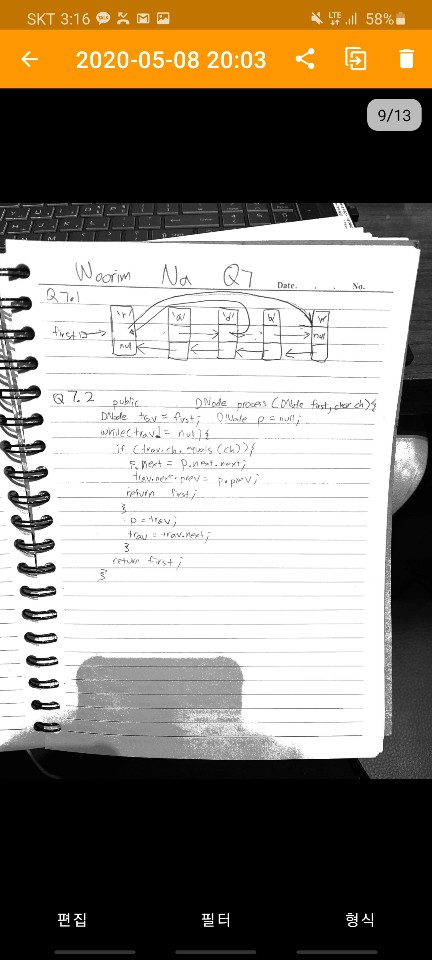 SKT 3:16 LTE 58%
2020-05-08 20:03
9/13
Woorim Na Q7
Date. . . No.
Q7.1
first
'r' 'a' 'd' 'a' 'r'
null null
Q7.2 public DNode process (DNode first, char ch){
DNode trav = first; DNode p = null;
while(trav != null){
if (trav.ch.equals(ch)){
p.next = p.next.next;
trav.next.prev = p.prev;
return first;
}
p = trav;
trav = trav.next;
}
return first;
}
편집 필터 형식